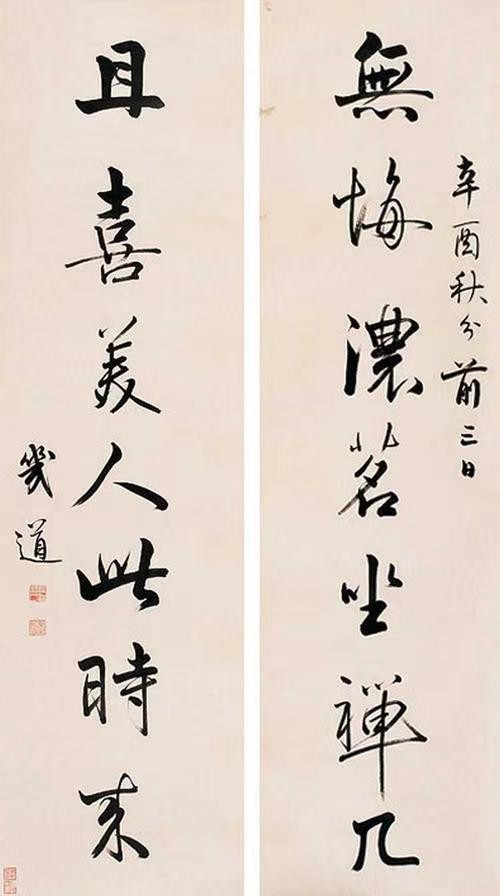 辛酉秋分前三日
無悔濃茗坐禪几
且喜美人此時来
幾道